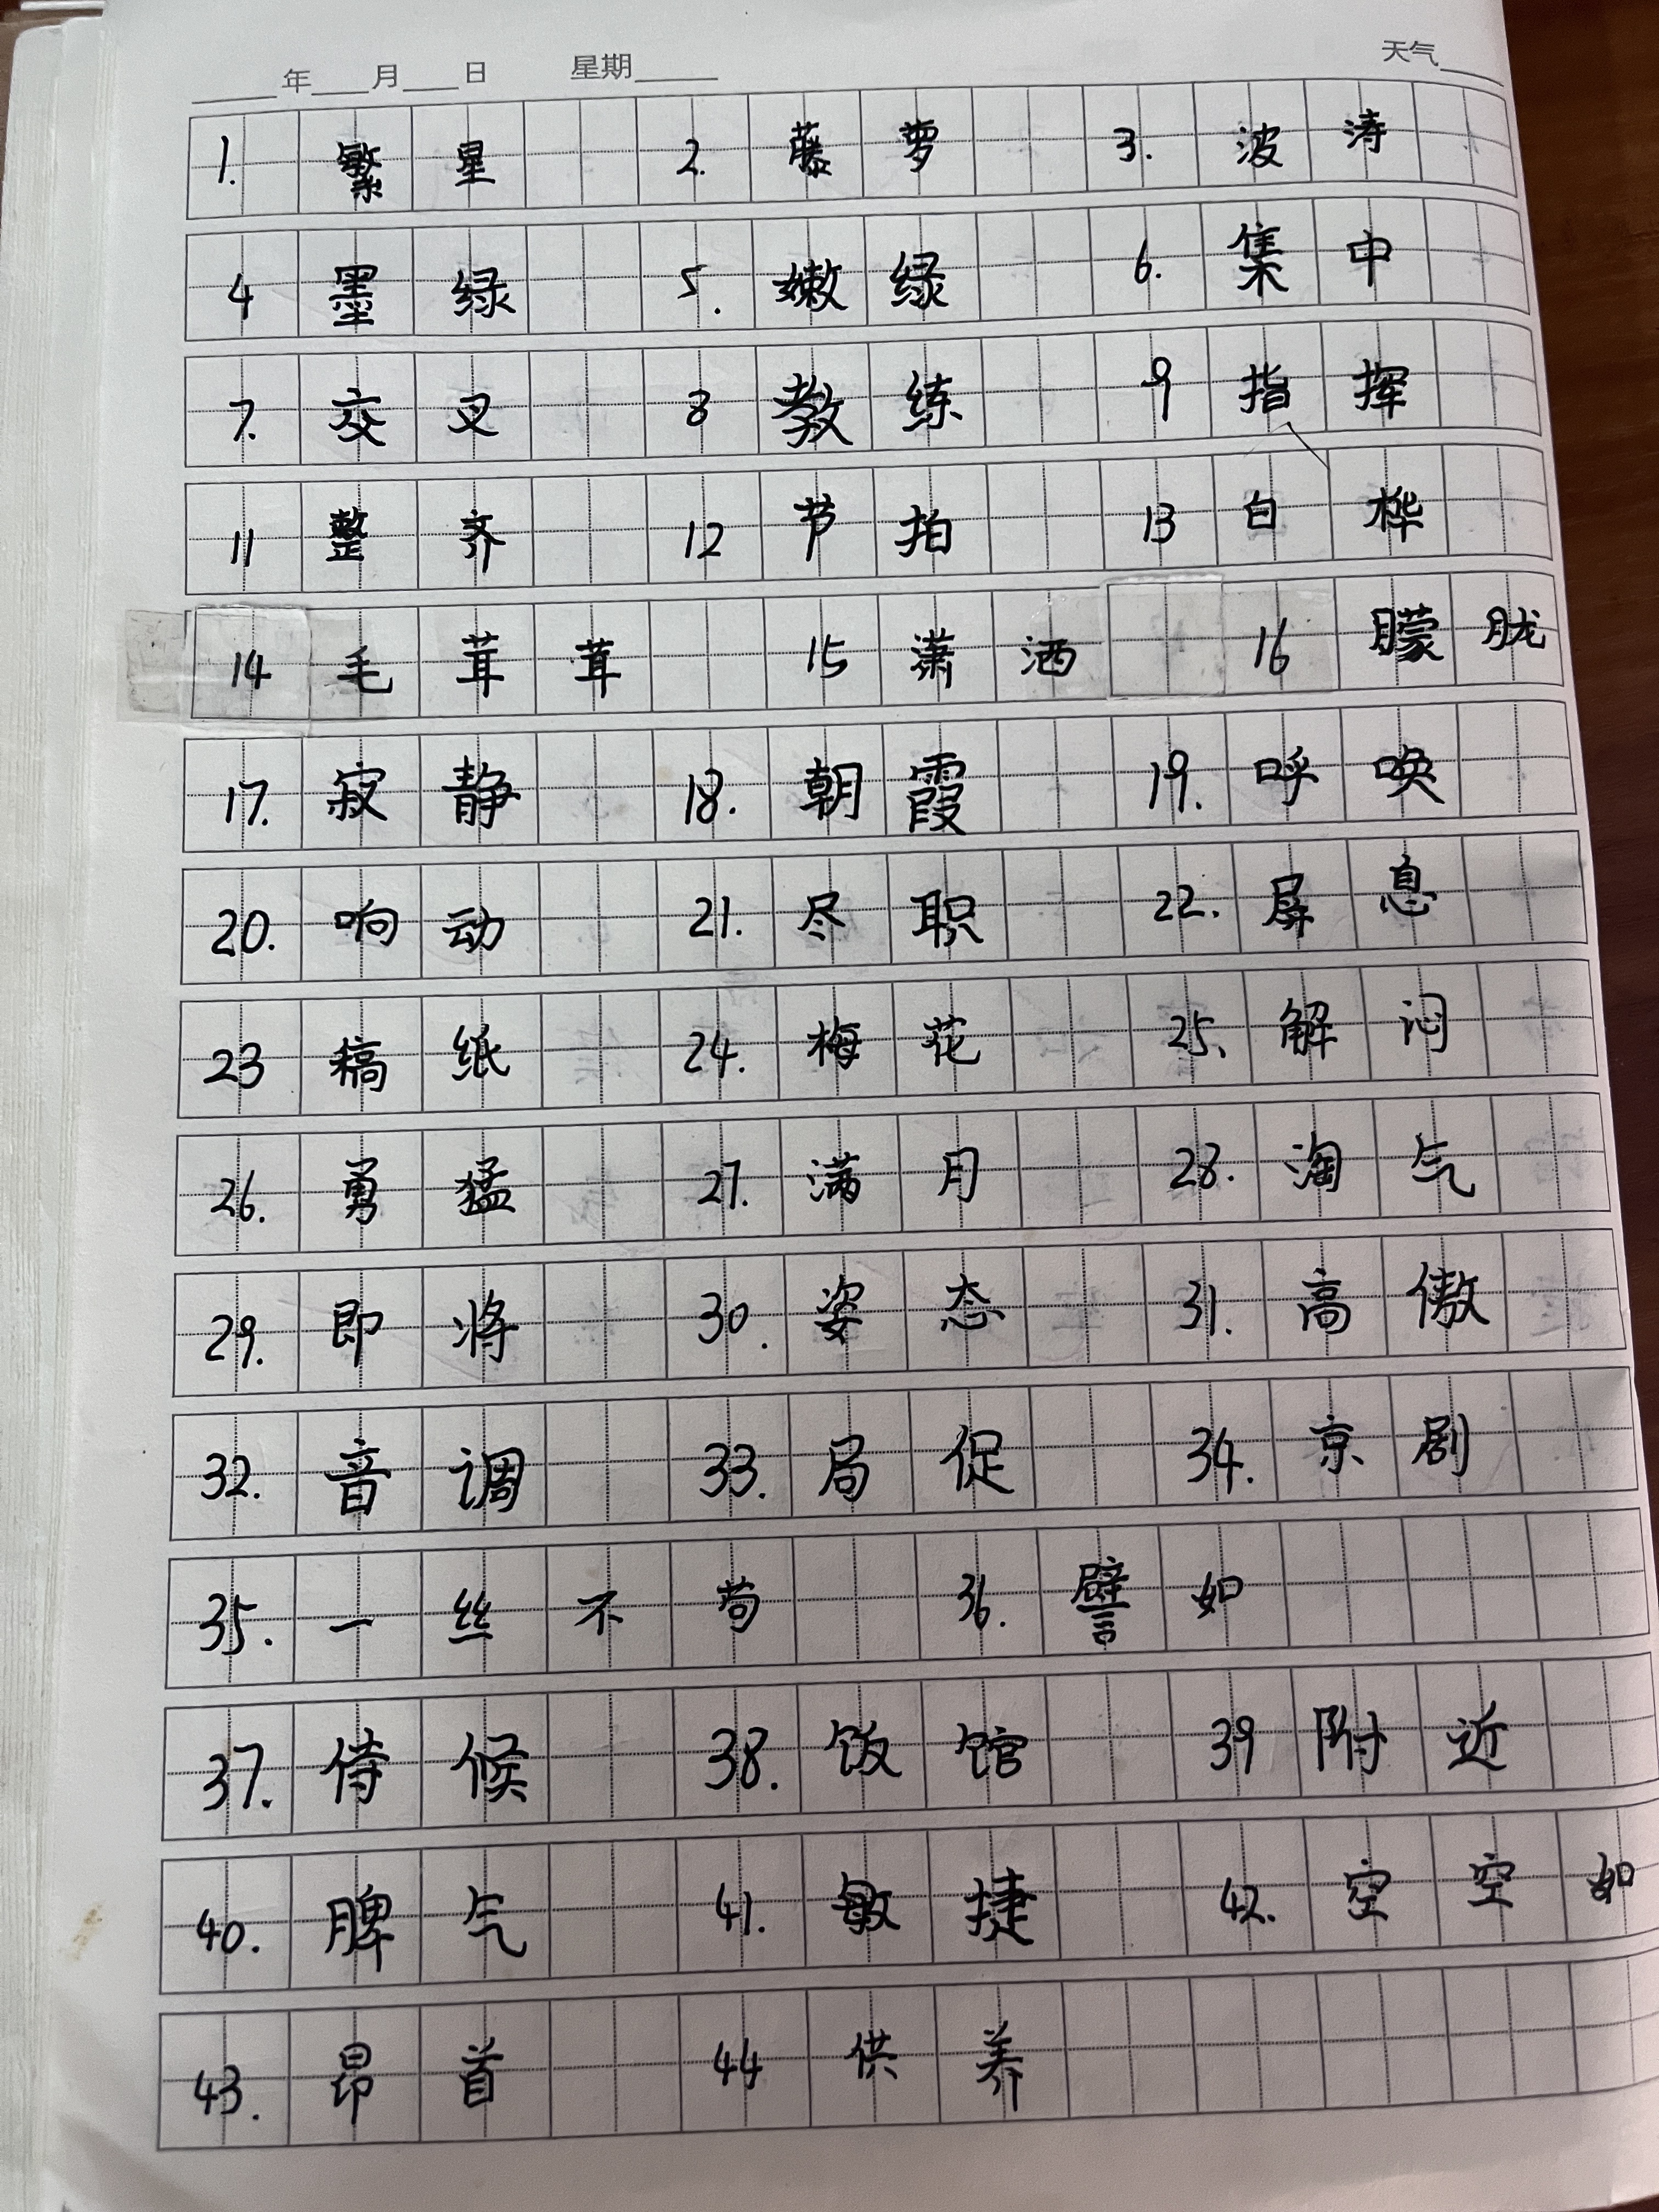 ____年____月____日 星期_____ 天气____
1. 繁星 2. 藤萝 3. 波涛
4 墨绿 5. 嫩绿 6. 集中
7. 交叉 8 教练 9 指挥
11 整齐 12 节拍 13 白桦
14 毛茸茸 15 潇洒 16 朦胧
17. 寂静 18. 朝霞 19. 呼唤
20. 响动 21. 尽职 22. 屏息
23 稿纸 24. 梅花 25. 解闷
26. 勇猛 27. 满月 28. 淘气
29. 即将 30. 姿态 31. 高傲
32. 音调 33. 局促 34. 京剧
35. 一丝不苟 36. 譬如
37. 侍候 38. 饭馆 39 附近
40. 脾气 41. 敏捷 42. 空空如
43. 昂首 44 供养